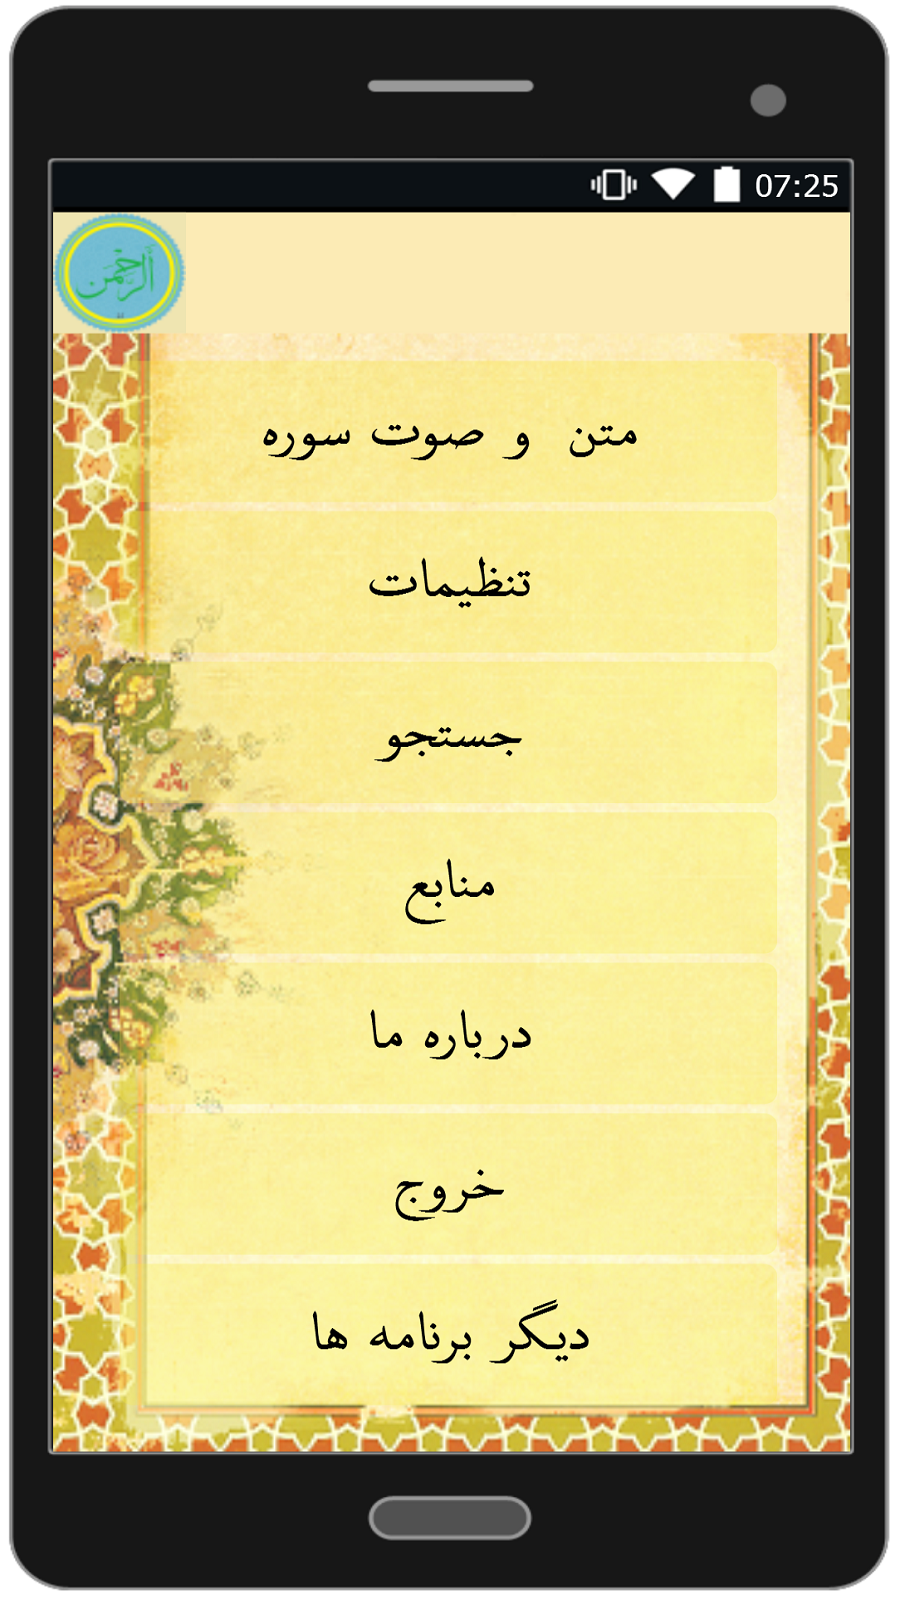 07:25
الرحمن
متن و صوت سوره
تنظیمات
جستجو
منابع
درباره ما
خروج
دیگر برنامه ها